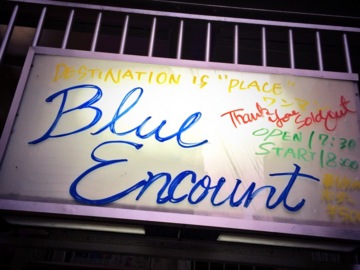 DESTINATION is "PLACE"
ワンマン
Blue
Encount
Thank you Sold out
OPEN / 17:30
START / 18:00